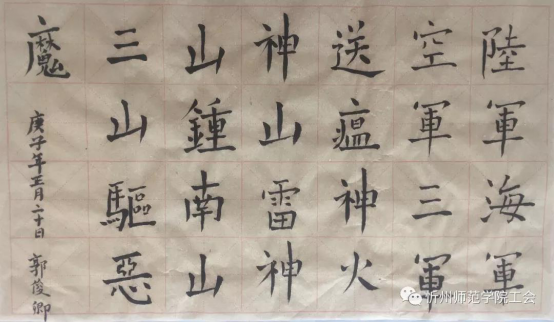 陸軍海軍
空軍三軍
送瘟神火
神山雷神
山鍾南山
三山驅惡
魔
庚子年正月二十日 郭俊卿
忻州师范学院工会